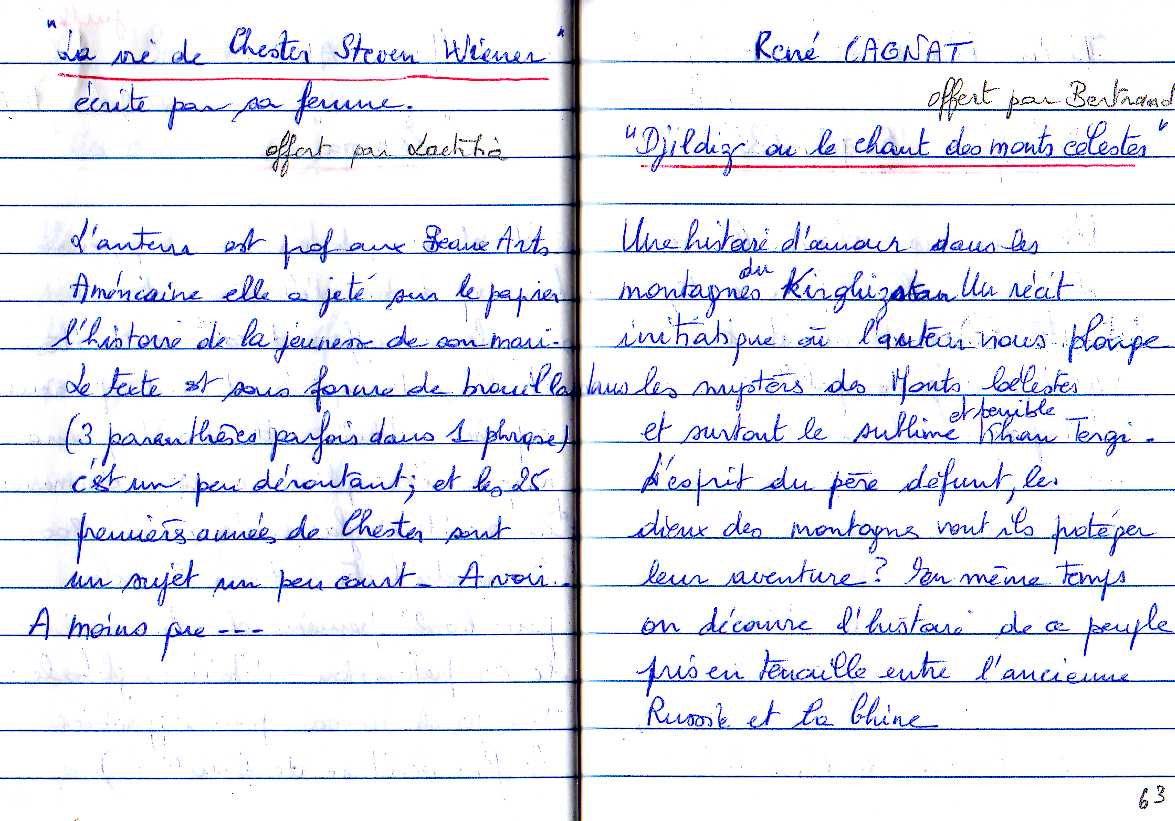 "La vie de Chester Steven Wiener"
écrite par sa femme.
offert par Laetitia
L'auteur est prof aux Beaux Arts
Américaine elle a jeté sur le papier
l'histoire de la jeunesse de son mari.
Le texte est sous forme de brouillon
(3 paranthèses parfois dans 1 phrase)
c'est un peu déroutant; et les 25
premières années de Chester sont
un sujet un peu court - A voir -
A moins que ---
René CAGNAT
offert par Bertrand
"Djildiz ou le chant des monts célestes"
Une histoire d'amour dans les
montagnes du Kirghizstan Un récit
initiatique où l'auteur nous plonge
dans les mystères des Monts Célestes
et surtout le sublime et terrible Khan Tengri.
L'esprit du père défunt, les
dieux des montagnes vont ils protéger
leur aventure? En même temps
on découvre l'histoire de ce peuple
pris en tenaille entre l'ancienne
Russie et la Chine
63